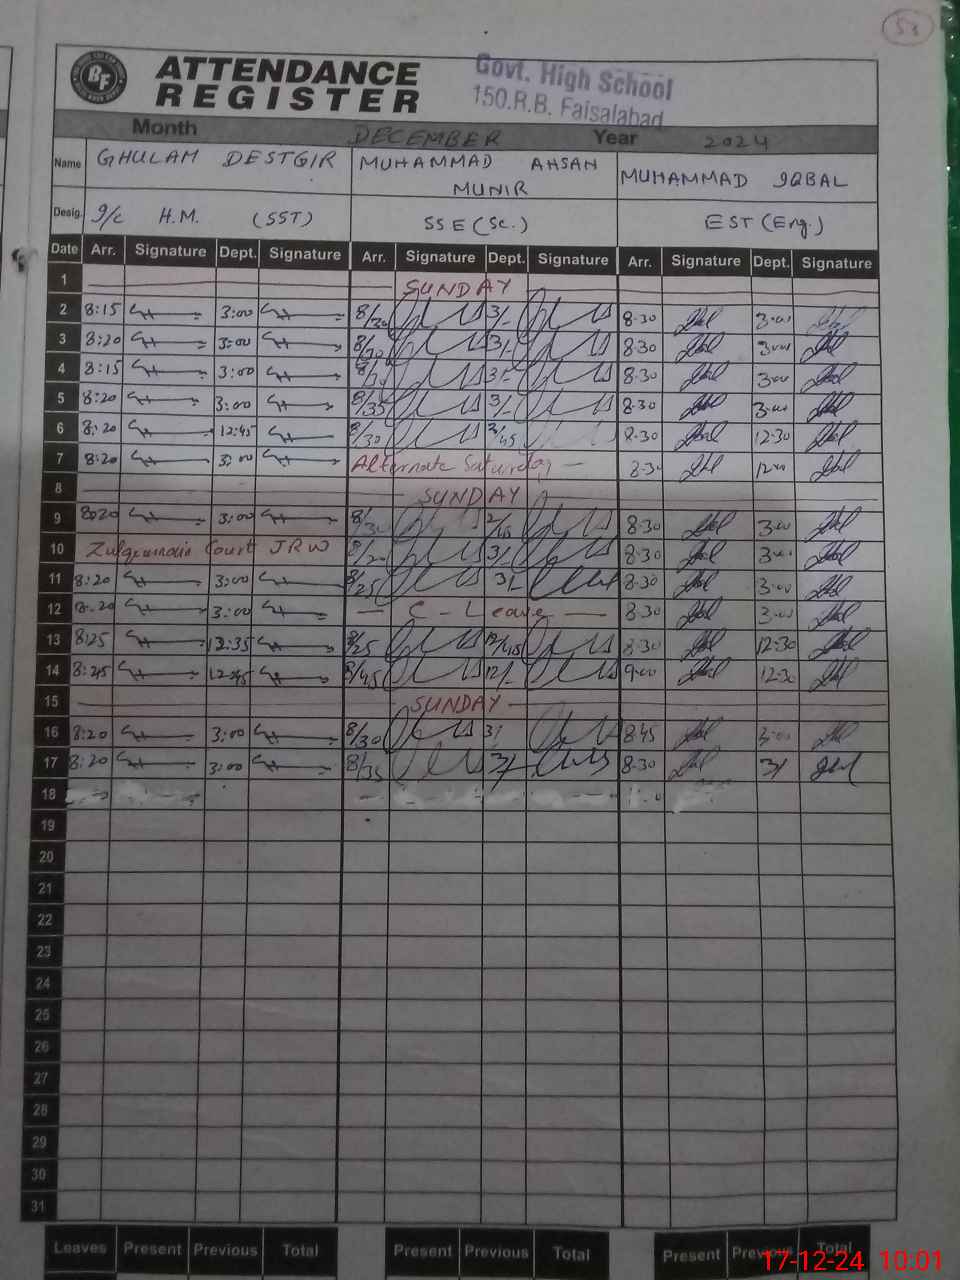 53
BF
ATTENDANCE
REGISTER
Govt. High School
150.R.B. Faisalabad
Month DECEMBER Year 2024
Name GHULAM DESTGIR MUHAMMAD AHSAN MUNIR MUHAMMAD IQBAL
Desig. I/C H.M. (SST) SSE (Sc.) EST (Eng.)
Date Arr. Signature Dept. Signature Arr. Signature Dept. Signature Arr. Signature Dept. Signature
1 SUNDAY
2 8:15 3:00 8/30 3/- 8-30 3-00
3 8:20 3:00 8/30 3/- 8-30 3-00
4 8:15 3:00 8/30 3/- 8-30 3-00
5 8:20 3:00 8/35 3/- 8-30 3-00
6 8:20 12:45 8/30 8-30 12-30
7 8:20 3:00 Alternate Saturday - 8-30 12-00
8 SUNDAY
9 8:20 3:00 8/30 2/45 8-30 3-00
10 Court JRW 3/- 8-30 3-00
11 8:20 3:00 8/25 3/- 8-30 3-00
12 8:20 3:00 - C - Leave - 8-30 3-00
13 8:25 12:35 8/25 12/45 8-30 12-30
14 8:45 12:45 8/45 12/- 9-00 12-30
15 SUNDAY
16 8:20 3:00 8/30 3/ 8-45 3-00
17 8:20 3:00 8/35 3/ 8-30 3/
18
19
20
21
22
23
24
25
26
27
28
29
30
31
Leaves Present Previous Total Present Previous Total Present Previous Total
17-12-24 10:01